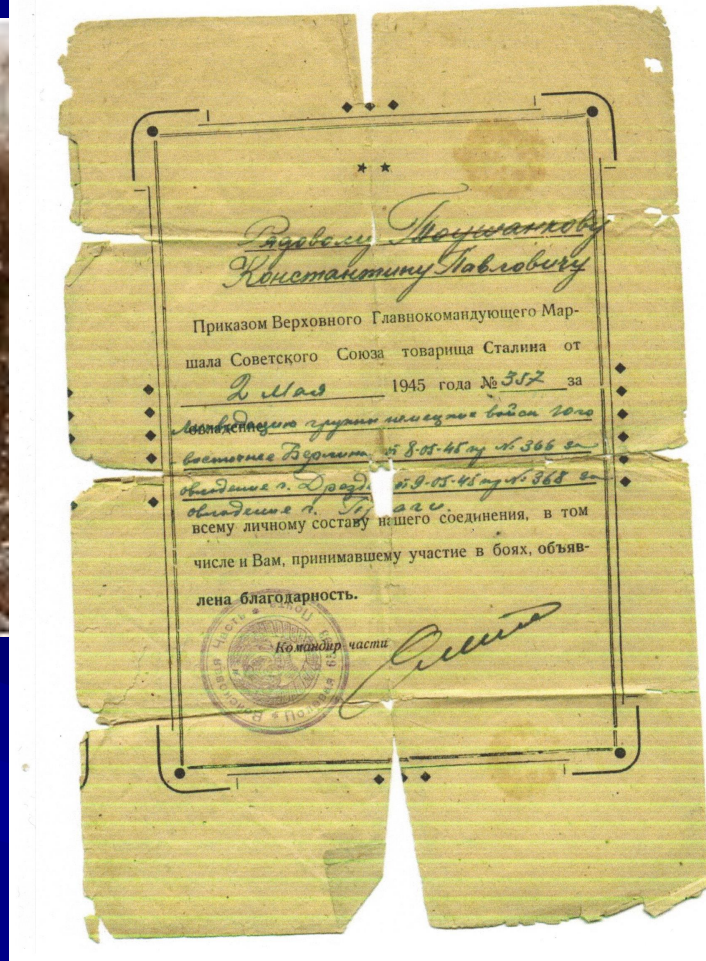 Рядовому
Константину Павловичу
Приказом Верховного Главнокомандующего Мар-
шала Советского Союза товарища Сталина от
2 Мая 1945 года № 357 за
Ликвидацию группы немецких войск юго
восточнее Берлина, от 8-05-45 пр № 366 за
овладение г. Дрезд от 9-05-45 пр № 368 за
овладение г. Праги.
всему личному составу нашего соединения, в том
числе и Вам, принимавшему участие в боях, объяв-
лена благодарность.
Командир части
Войсковая Часть Полевая Почта